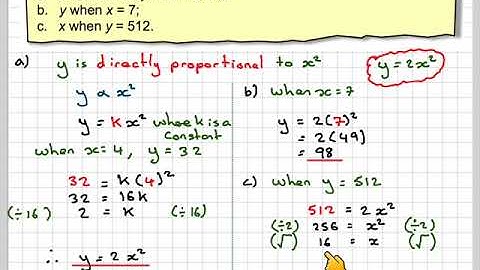 b. y when x = 7;
c. x when y = 512.
a) y is directly proportional to x²
y = 2x²
y α x²
y = kx² where k is a constant
when x = 4, y = 32
32 = k(4)²
32 = 16k
(÷16) 2 = k (÷16)
∴ y = 2x²
b) when x = 7
y = 2(7)²
= 2(49)
= 98
c) when y = 512
512 = 2x²
(÷2) 256 = x² (÷2)
(√) 16 = x (√)